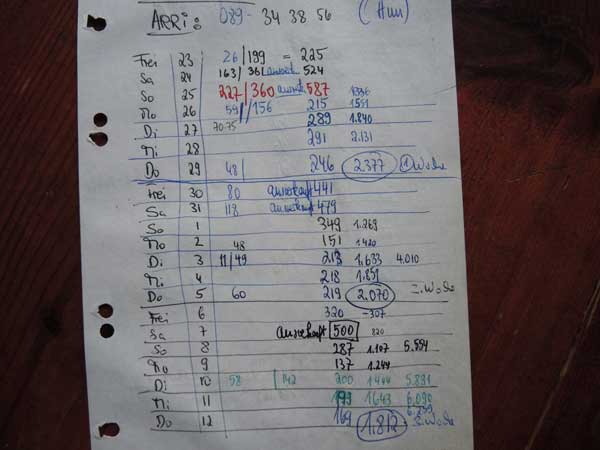 ARRI: 089- 34 38 56 (Hun)
Frei 23 26/199 = 225
Sa 24 163/361 ausverk 524
So 25 227/360 ausverk 587
Mo 26 59/156 215 1551
Di 27 70.75 289 1.840
Mi 28 291 2.131
Do 29 48/ 246 2377 1. Woche
Frei 30 80 ausverkauft 441
Sa 31 118 ausverkauft 479
So 1 349 1.269
Mo 2 48 151 1420
Di 3 11/49 213 1.633 4.010
Mi 4 218 1.851
Do 5 60 219 2.070 2. Woche
Frei 6 320 -307
Sa 7 ausverkauft 500 820
So 8 287 1.107 5.554
Mo 9 137 1.244
Di 10 58 /142 200 1444 5.891
Mi 11 199 1643 6.090
Do 12 169 1.812 6.259 3. Woche